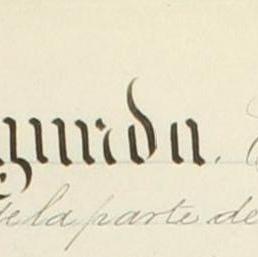 gunda.
de la parte de